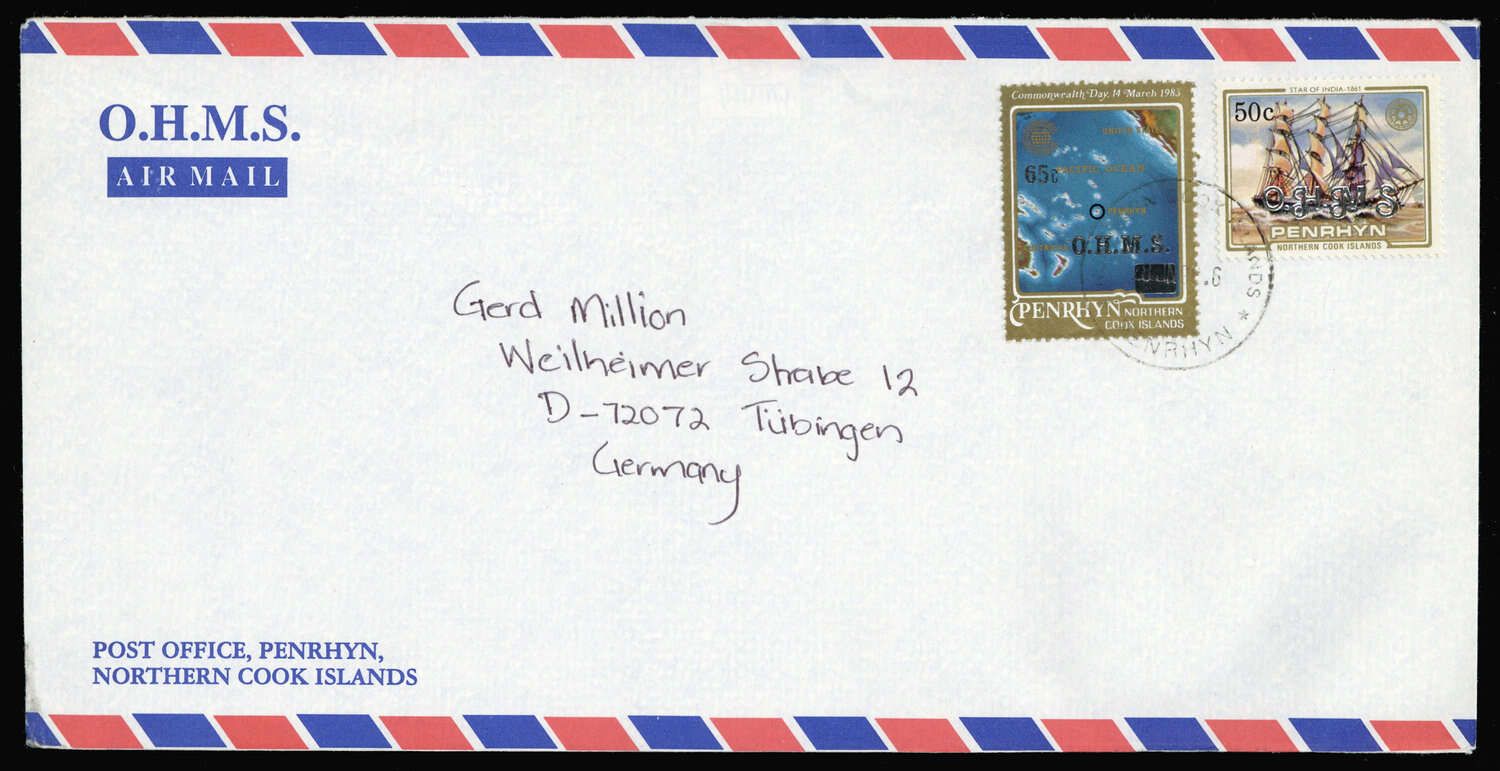 O.H.M.S.
AIR MAIL
Commonwealth Day, 14 March 1983
PACIFIC OCEAN
65c
PENRHYN
O.H.M.S.
PENRHYN NORTHERN
COOK ISLANDS
STAR OF INDIA-1861
50c
O.H.M.S
PENRHYN
NORTHERN COOK ISLANDS
Gerd Million
Weilheimer Straße 12
D-72072 Tübingen
Germany
POST OFFICE, PENRHYN,
NORTHERN COOK ISLANDS